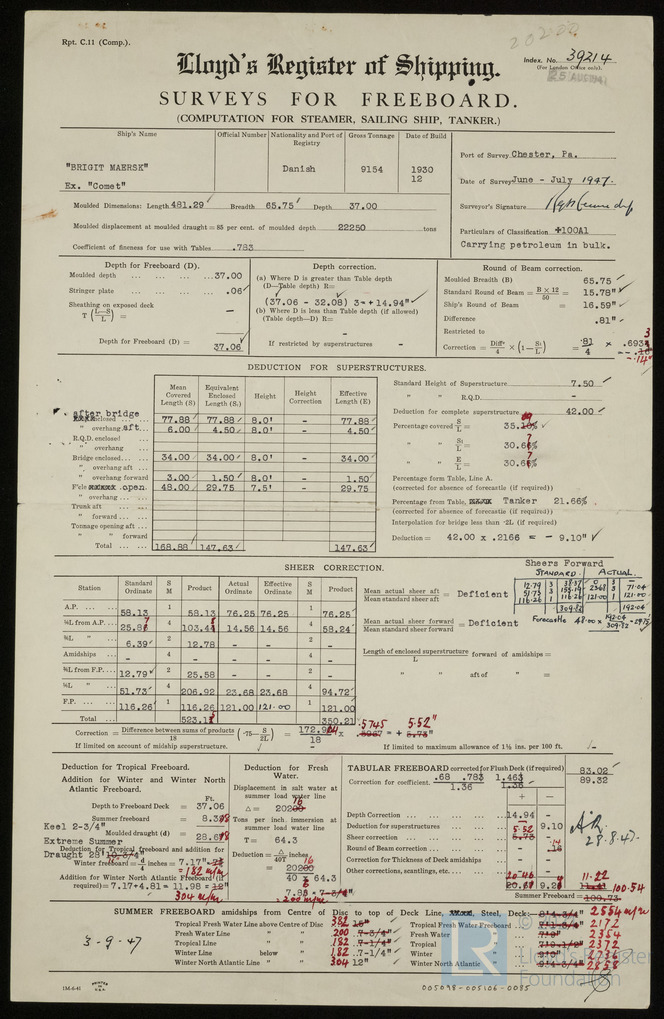 Rpt. C.11 (Comp.).
20202
Lloyd's Register of Shipping.
Index. No. 39214
(For London Office only).
25 AUG 1947
SURVEYS FOR FREEBOARD.
(COMPUTATION FOR STEAMER, SAILING SHIP, TANKER.)
Ship's Name
Official Number
Nationality and Port of Registry
Gross Tonnage
Date of Build
"BRIGIT MAERSK"
Ex. "Comet"
Danish
9154
1930
12
Port of Survey Chester, Pa.
Date of Survey June - July 1947.
Surveyor's Signature
Particulars of Classification +100A1
Carrying petroleum in bulk.
Moulded Dimensions: Length 481.29 Breadth 65.75 Depth 37.00
Moulded displacement at moulded draught = 85 per cent. of moulded depth 22250 tons
Coefficient of fineness for use with Tables .783
Depth for Freeboard (D).
Moulded depth ... 37.00
Stringer plate ... .06
Sheathing on exposed deck
T (L—S/L) = —
Depth for Freeboard (D) = 37.06
Depth correction.
(a) Where D is greater than Table depth
(D—Table depth) R=
(37.06 - 32.08) 3 = + 14.94"
(b) Where D is less than Table depth (if allowed)
(Table depth—D) R=
-
If restricted by superstructures -
Round of Beam correction.
Moulded Breadth (B) 65.75
Standard Round of Beam = B × 12/50 = 15.78"
Ship's Round of Beam = 16.59"
Difference .81"
Restricted to
Correction = Diffce/4 × (1 — S1/L) = .81/4 × .693
-.14"
DEDUCTION FOR SUPERSTRUCTURES.
Mean Covered Length (S)
Equivalent Enclosed Length (S1)
Height
Height Correction
Effective Length (E)
after bridge enclosed 77.88 77.88 8.0' - 77.88
" overhang aft 6.00 4.50 8.0' - 4.50
R.Q.D. enclosed
" overhang
Bridge enclosed 34.00 34.00 8.0' - 34.00
" overhang aft
" overhang forward 3.00 1.50 8.0' - 1.50
F'cle open 48.00 29.75 7.5' - 29.75
" overhang
Trunk aft
" forward
Tonnage opening aft
" " forward
Total 168.88 147.63 147.63
Standard Height of Superstructure 7.50
" " R.Q.D. -
Deduction for complete superstructure 42.00
Percentage covered S/L = 35.09%
" " S1/L = 30.67%
" " E/L = 30.67%
Percentage from Table, Line A.
(corrected for absence of forecastle (if required))
Percentage from Table, Tanker 21.66%
(corrected for absence of forecastle (if required))
Interpolation for bridge less than ·2L (if required)
Deduction = 42.00 x .2166 = - 9.10"
SHEER CORRECTION.
Station
Standard Ordinate
S M
Product
Actual Ordinate
Effective Ordinate
S M
Product
A.P. 58.13 1 58.13 76.25 76.25 1 76.25
¼L from A.P. 25.87 4 103.48 14.56 14.56 4 58.24
⅛L " 6.39 2 12.78 - - 2 -
Amidships - 4 - - - 4 -
⅛L from F.P. 12.79 2 25.58 - - 2 -
¼L " 51.73 4 206.92 23.68 23.68 4 94.72
F.P. 116.26 1 116.26 121.00 121.00 1 121.00
Total 523.15 350.21
Mean actual sheer aft / Mean standard sheer aft = Deficient
Mean actual sheer forward / Mean standard sheer forward = Deficient
Length of enclosed superstructure / L forward of amidships =
" " aft of " =
Sheers Forward
STANDARD. ACTUAL.
12.79 3 38.37 0 3 —
51.73 3 155.19 23.68 3 71.04
116.26 1 116.26 121.00 1 121.00
309.82 192.04
Forecastle 48.00 x 192.04/309.82 = 29.75
Correction = Difference between sums of products/18 (·75—S/2L) = 172.94/18 x .5745 = + 5.52"
If limited on account of midship superstructure. -
If limited to maximum allowance of 1½ ins. per 100 ft. -
Deduction for Tropical Freeboard.
Addition for Winter and Winter North Atlantic Freeboard.
Ft.
Depth to Freeboard Deck = 37.06
Summer freeboard = 8.38
Moulded draught (d) = 28.68
Keel 2-3/4"
Extreme Summer
Draught 28'
Deduction for Tropical freeboard and addition for
Winter freeboard = d/4 inches = 7.17"
= 182 m/m
Addition for Winter North Atlantic Freeboard (if
required) = 7.17+4.81 = 11.98 = 12"
304 m/m
Deduction for Fresh Water.
Displacement in salt water at summer load water line
△ = 20216
Tons per inch immersion at summer load water line
T = 64.3
Deduction = △/40T inches
= 20216
40 x 64.3
7.86 = 7-3/4"
= 200 m/m
TABULAR FREEBOARD corrected for Flush Deck (if required) 83.02
Correction for coefficient. .68 .783 1.463
1.36 1.36 89.32
+ -
Depth Correction 14.94 -
Deduction for superstructures - 9.10
Sheer correction 5.52 -
Round of Beam correction - .14
Correction for Thickness of Deck amidships - -
Other corrections, scantlings, etc. - -
20.46 9.24 11.22
Summer Freeboard = 100.54
28.8.47.
SUMMER FREEBOARD amidships from Centre of Disc to top of Deck Line, Steel, Deck:— 8'4-3/4" 2554 m/m
Tropical Fresh Water Line above Centre of Disc 382 15" Tropical Fresh Water Freeboard 7'1-3/4" 2172
Fresh Water Line " " 200 7-3/4" Fresh Water " 7'9" 2354
Tropical Line " " 182 7-1/4" Tropical " 7'9-1/2" 2372
Winter Line below " 182 7-1/4" Winter " 2736
Winter North Atlantic Line " " 304 12" Winter North Atlantic " 9'4-3/4" 2858
3-9-47
1M-6-41 PRINTED IN U.S.A.
005098-005106-0085
© Lloyd's Register Foundation
LR